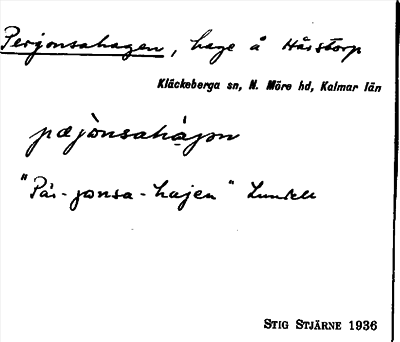 Perjonsahagen, hage å Hårstorp
Kläckeberga sn, N. Möre hd, Kalmar län
pæjònsahàgən
"Pär-jonsa-hajen" Lundell
STIG STJÄRNE 1936